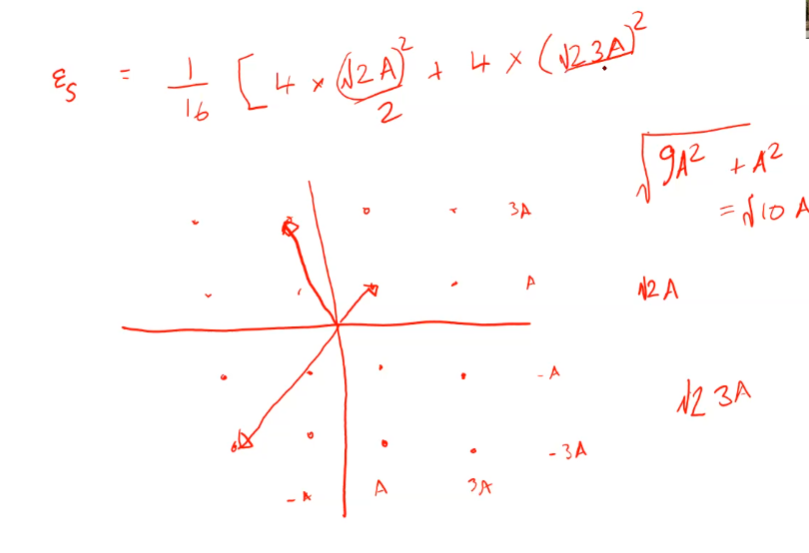 εs = 1/16 [ 4 × (√2A)²/2 + 4 × (√2 3A)²
√9A² + A²
= √10 A
3A
A
√2A
-A
√2 3A
-3A
-A A 3A